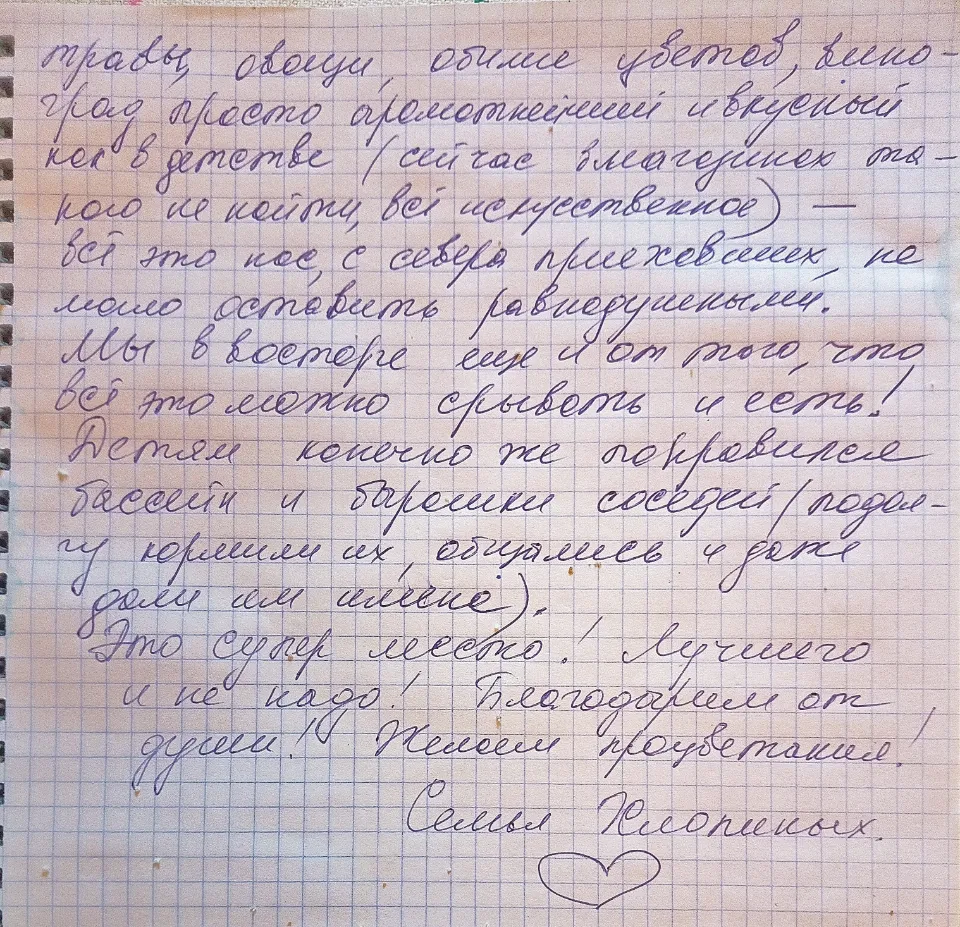 травы, овощи, обилие цветов, вино-
град просто ароматнейший и вкусный
как в детстве (сейчас в магазинах та-
кого не найти, всё искусственное) —
всё это нас, с севера приехавших, не
могло оставить равнодушными.
Мы в восторге еще и от того, что
всё это можно срывать и есть!
Детям конечно же понравился
бассейн и барашки соседей (подол-
гу кормили их, общались и даже
дали им имена).
Это супер место! Лучшего
и не надо! Благодарим от
души! Желаем процветания!
Семья Хлопиных.